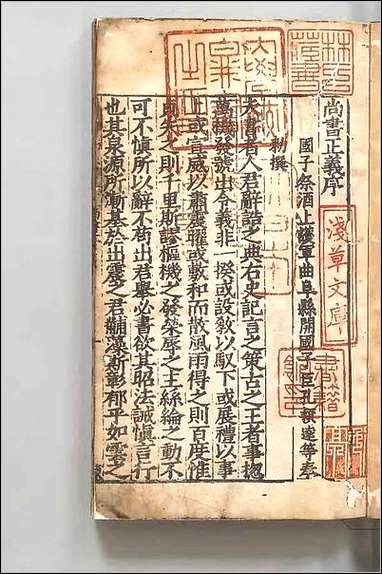 尚書正義序
國子祭酒上護軍曲阜縣開國子臣孔穎達等奉
勑撰
夫書者人君辭誥之典右史記言之策古之王者事揔
萬機發號出令義非一揆或設敎以馭下或展禮以事
上或宣威以肅震曜或敷和而散風雨得之則百度惟
貞失之則千里斯謬樞機之發榮辱之主絲綸之動不
可不慎所以辭不苟出君舉必書欲其昭法誡慎言行
也其泉源所漸基於出震之君黼藻斯彰郁乎如雲之
林氏藏書
淺草文庫
書籍館印